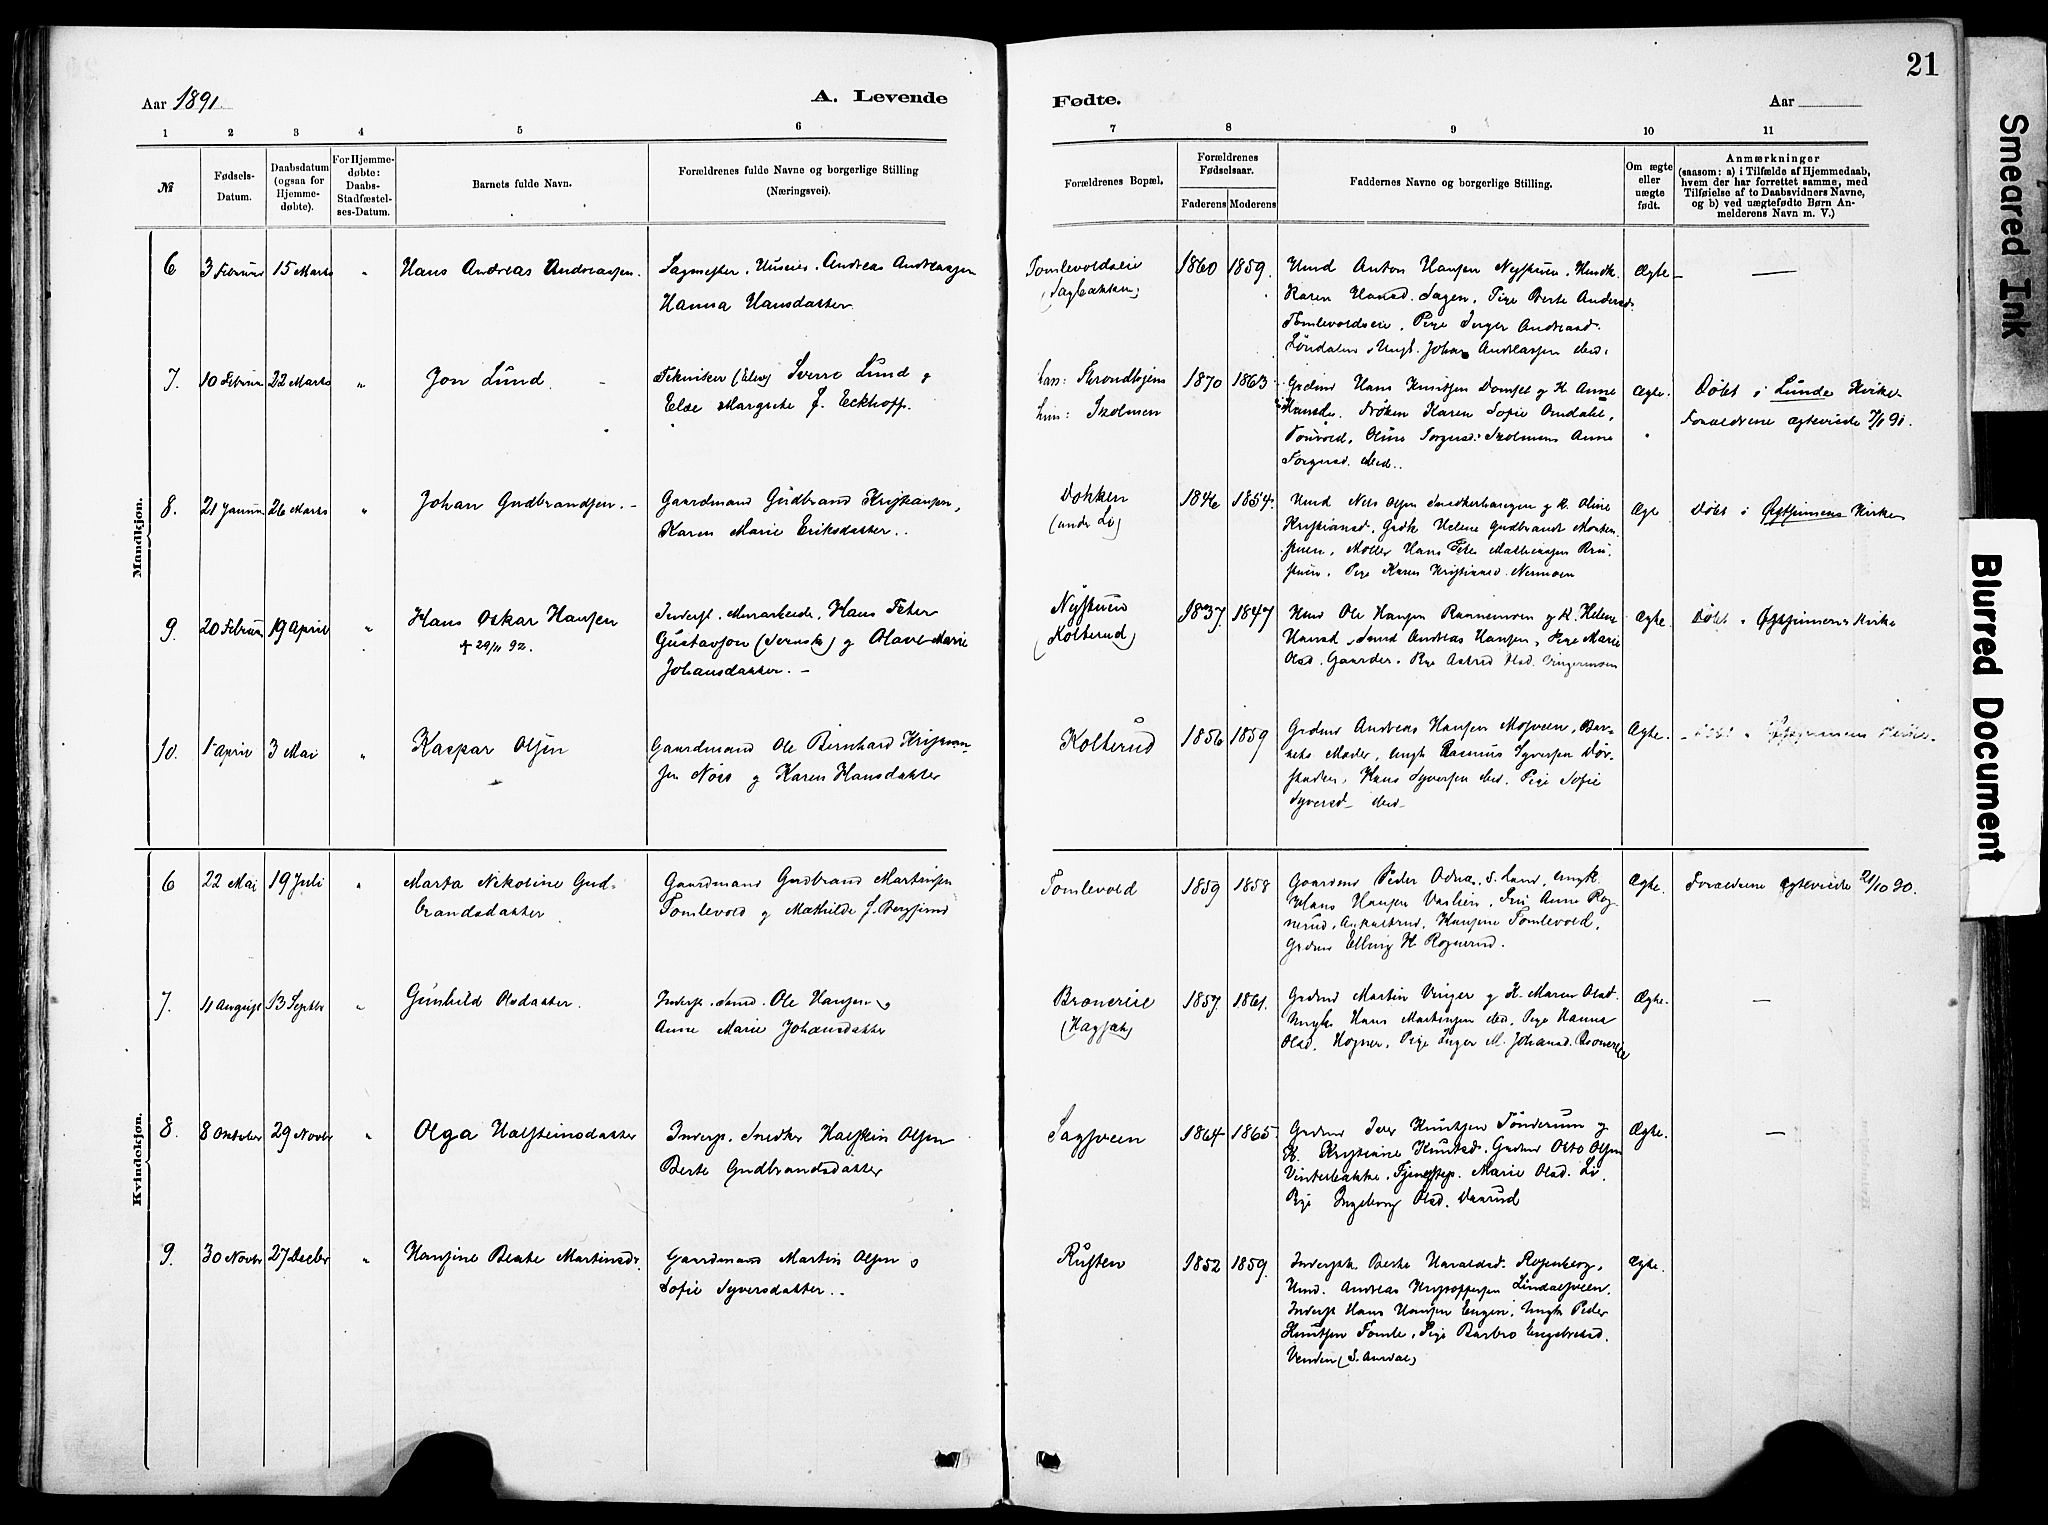 21
Aar 1891.
A. Levende
Fødte.
Aar
1 2 3 4 5 6 7 8 9 10 11
№
Fødsels-
Datum.
Daabsdatum
(ogsaa for
Hjemme-
døbte).
For Hjemme-
døbte:
Daabs-
Stadfæstel-
ses-Datum.
Barnets fulde Navn.
Forældrenes fulde Navne og borgerlige Stilling
(Næringsvei).
Forældrenes Bopæl.
Forældrenes
Fødselsaar.
Faderens Moderens
Faddernes Navne og borgerlige Stilling.
Om ægte
eller
uægte
født.
Anmærkninger
(saasom: a) i Tilfælde af Hjemmedaab,
hvem der har forrettet samme, med
Tilføielse af to Daabsvidners Navne,
og b) ved uægtefødte Børn An-
melderens Navn m. V.)
Mandkjøn.
6 3 Februar 15 Marts " Hans Andreas Andreassen.
Sagmester, Andreas Andreassen
Hanna Hansdatter
Tomlevoldseie
(Sagbakken)
1860 1859.
Anton Hansen
Karen Hansd. Sagen, Pige Berte Andersd.
Tomlevoldseie, Pige Inger Andreasd.
Løndalen, Ungk. Johan Andreassen ibid.
Ægte
7. 10 Februar 22 Marts " Jon Lund.
Tekniker (Elev) Sverre Lund og
Else Margrete f. Eckhoff.
han: Strondbygens
hun: Skolmen
1870 1863
Grdmd Hans Knutsen Domset g K. Anne
Hansd. Frøken Karen Sofie Omdahl,
Tonvold, Oline Torgersd. Skolmens Anne
Torgersd. ibid.
Ægte.
Døbt i Lunde Kirke
Forældrene ægteviede 7/1 91.
8. 21 Januar 26 Marts " Johan Gudbrandsen.
Gaardmand Gudbrand Kristiansen,
Karen Marie Eriksdatter.
Dokken
(under Li)
1846 1854.
Nils Olsen Snedkerhaugen g K. Oline
Kristiansd. Grdk Helene Gudbrandsd.
Møller Hans Peter Mathiassen
Pige Karen Kristiansd. Nermoen
Ægte
Døbt i Østsinnens Kirke
9. 20 Februar 19 April " Hans Oskar Hansen
+ 29/11 92.
Inderst. Murarbeide, Hans Peter
Gustavson (Svensk) g Olave Marie
Johansdatter.
Nystuen
(Kolterud)
1837. 1847
Ole Hansen g K. Helene
Hansd. Andreas Hansen, Pige Marie
Olsd. Gaarder. Pige Astrid Olsd. Vingermoen
Ægte.
Døbt i Østsinnens Kirke
10. 1 April 3 Mai " Kaspar Olsen
Gaardmand Ole Bernhard Kristian-
sen Nøss g Karen Hansdatter
Kolterud
1856 1859
Grdmd Andreas Hansen Moveen, Bar-
nets Moder, Ungk Rasmus Syversen
Hans Syversen ibid. Pige Sofie
Syversd ibid
Ægte.
Døbt i Østsinnens Kirke.
Kvindekjøn.
6 22 Mai 19 Juli " Marta Nikoline Gud-
brandsdatter
Gaardmand Gudbrand Martinsen
Tomlevold g Mathilde f. Bergsund
Tomlevold
1859 1858
Gaardmd Peder Odnæs, S. Land, Ungk
Hans Hansen Vaslien, Fru Anne Rog-
nerud, Hansine Tomlevold,
Grdmd Elling H Rognerud.
Ægte.
Forældrene ægteviede 21/10 90.
7. 11 August 13 Septbr " Gunhild Olsdatter.
Inderst. Smed. Ole Hansen g
Anne Marie Johansdatter
Broneeie
(Hagsæt)
1857. 1861.
Grdmd Martin Vinger g K. Maren Olsd.
Ungk. Hans Martinsen ibid. Pige Hanna
Olsd. Høgner, Pige Inger M. Johansd. Broneeie
Ægte.
8. 8 Oktober 29 Novbr " Olga Halsteinsdatter
Inderst. Snedker Halstein Olsen
Berte Gudbrandsdatter
Sagsveen
1864 1865.
Grdmd Iver Knutsen Tønderum g
K. Kristiane Knutsd. Grdmd Otto Olsen
Vinterbakke, Tjenestep. Marie Olsd. Li.
Pige Ingeborg Olsd. Daarud
Ægte.
9. 30 Novbr 27 Decbr " Hansine Beate Martinsdr.
Gaardmand Martin Olsen g
Sofie Syversdatter.
Rusten
1852 1859.
Berte Haraldsd. Rosenberg,
Andreas Kristoffersen Lindalsveen,
Inderst Hans Hansen Engen, Ungk Peder
Knutsen Tomle, Pige Barbro Engebretsd.
(S. Aurdal)
Ægte.
Smeared Ink
Blurred Document